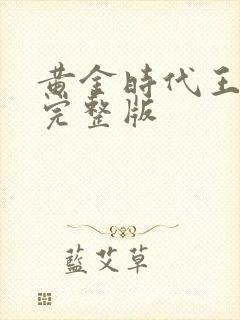 黄金時代王
完整版
藍艾草